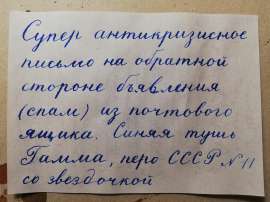 Супер антикризисное
письмо на обратной
стороне объявления
(спам) из почтового
ящика. Синяя тушь
Гамма, перо СССР №11
со звездочкой